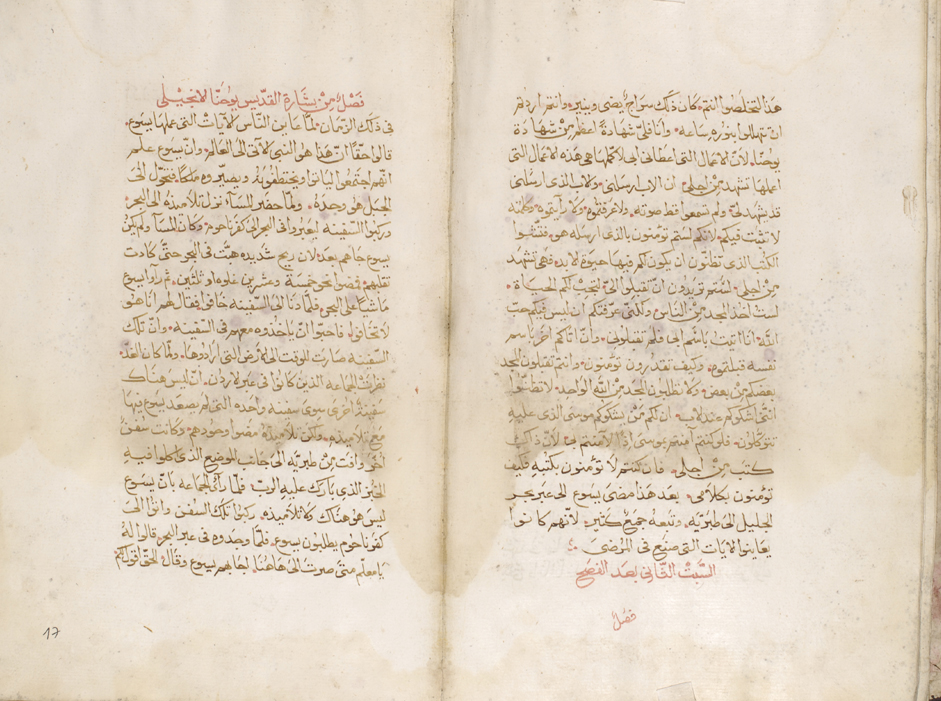 هذا لتخلصوا انتم وكان ذلك سراج يضي وينير وانتم اردتم
ان تتهللوا بنوره ساعه وانا فلي شهادة اعظم من شهادة
يوحنا لان الاعمال التي اعطاني ابي لاكملها هي هذه الاعمال التي
اعملها تشهد من اجلي ان الاب ارسلني والاب الذي ارسلني
قد يشهد لي ولم تسمعوا قط صوته ولا عرفتموه ولا رأيتموه وكلمته
لا تثبت فيكم لانكم لستم تؤمنون بالذي ارسله هو فتشوا
الكتب الذي تظنون ان يكون لكم فيها حيوة الابد فهي تشهد
من اجلي لستم تريدون ان تقبلوا الي لتجب لكم الحياة
لست اخذ المجد من الناس ولكنني عرفتكم ان ليس فيكم حب
الله انا اتيت باسم ابي فلم تقبلوني وان اتاكم اخر باسم
نفسه قبلتموه وكيف تقدرون تؤمنون وانتم تقبلون المجد
بعضكم من بعض ولا تطلبون المجد من الله الواحد لا تظنوا
انني اشكوكم عند الاب ان لكم من يشكوكم موسى الذي عليه
تتوكلون فلو كنتم آمنتم بموسى اذا لآمنتم بي لان ذاك
كتب من اجلي فان كنتم لا تؤمنون بكتبه فكيف
تؤمنون بكلامي بعد هذا مضى يسوع الى عبر بحر
الجليل الى طبريه وتبعه جميع كثير لانهم كانوا
يعاينوا الايات التي صنع في المرضى
السبت الثاني بعد الفصح
فصل
فصل من بشارة القديس يوحنا الانجيلي
في ذلك الزمان لما عاين الناس الايات التي عملها يسوع
قالوا حقا ان هذا هو النبي الآتي الى العالم وان يسوع علم
انهم اجتمعوا لياتوا ويختطفونه ويصيروه ملكا فتحول الى
الجبل هو وحده ولما حضر المسآ نزل تلاميذه الى البحر
وركبوا السفينه ليعبروا في البحر الى كفرناحوم وكان المسآ ولم يكن
يسوع جاهم بعد لان ريح شديده هبت في البحر حتى كادت
تقلبهم فمضوا نحو خمسة وعشرين غلوه او ثلثين ثم رأوا يسوع
ماشيا على البحر فلما دنا الى السفينه خافوا فقال لهم انا هو
لا تخافوا فاحبوا ان ياخذوه معهم في السفينه وان تلك
السفينه صارت للوقت الى الارض التي ارادوها ولما كان الغد
نظرت الجماعه الذين كانوا في عبر الاردن ان ليس هناك
سفينة اخرى سوى سفينه واحده التي لم يصعد يسوع فيها
مع تلاميذه ولكن تلاميذه مضوا وحدهم وكانت سفن
أخر وافت من طبريه الى جانب الموضع الذي اكلوا فيه
الخبز الذي بارك عليه الرب فلما رأت الجماعه بان يسوع
ليس هو هناك ولا تلاميذه ركبوا تلك السفن واتوا الى
كفرناحوم يطلبون يسوع فلما وجدوه في عبر البحر قالوا له
يا معلم متى صرت الى هاهنا اجابهم يسوع وقال الحق اقول لكم
17